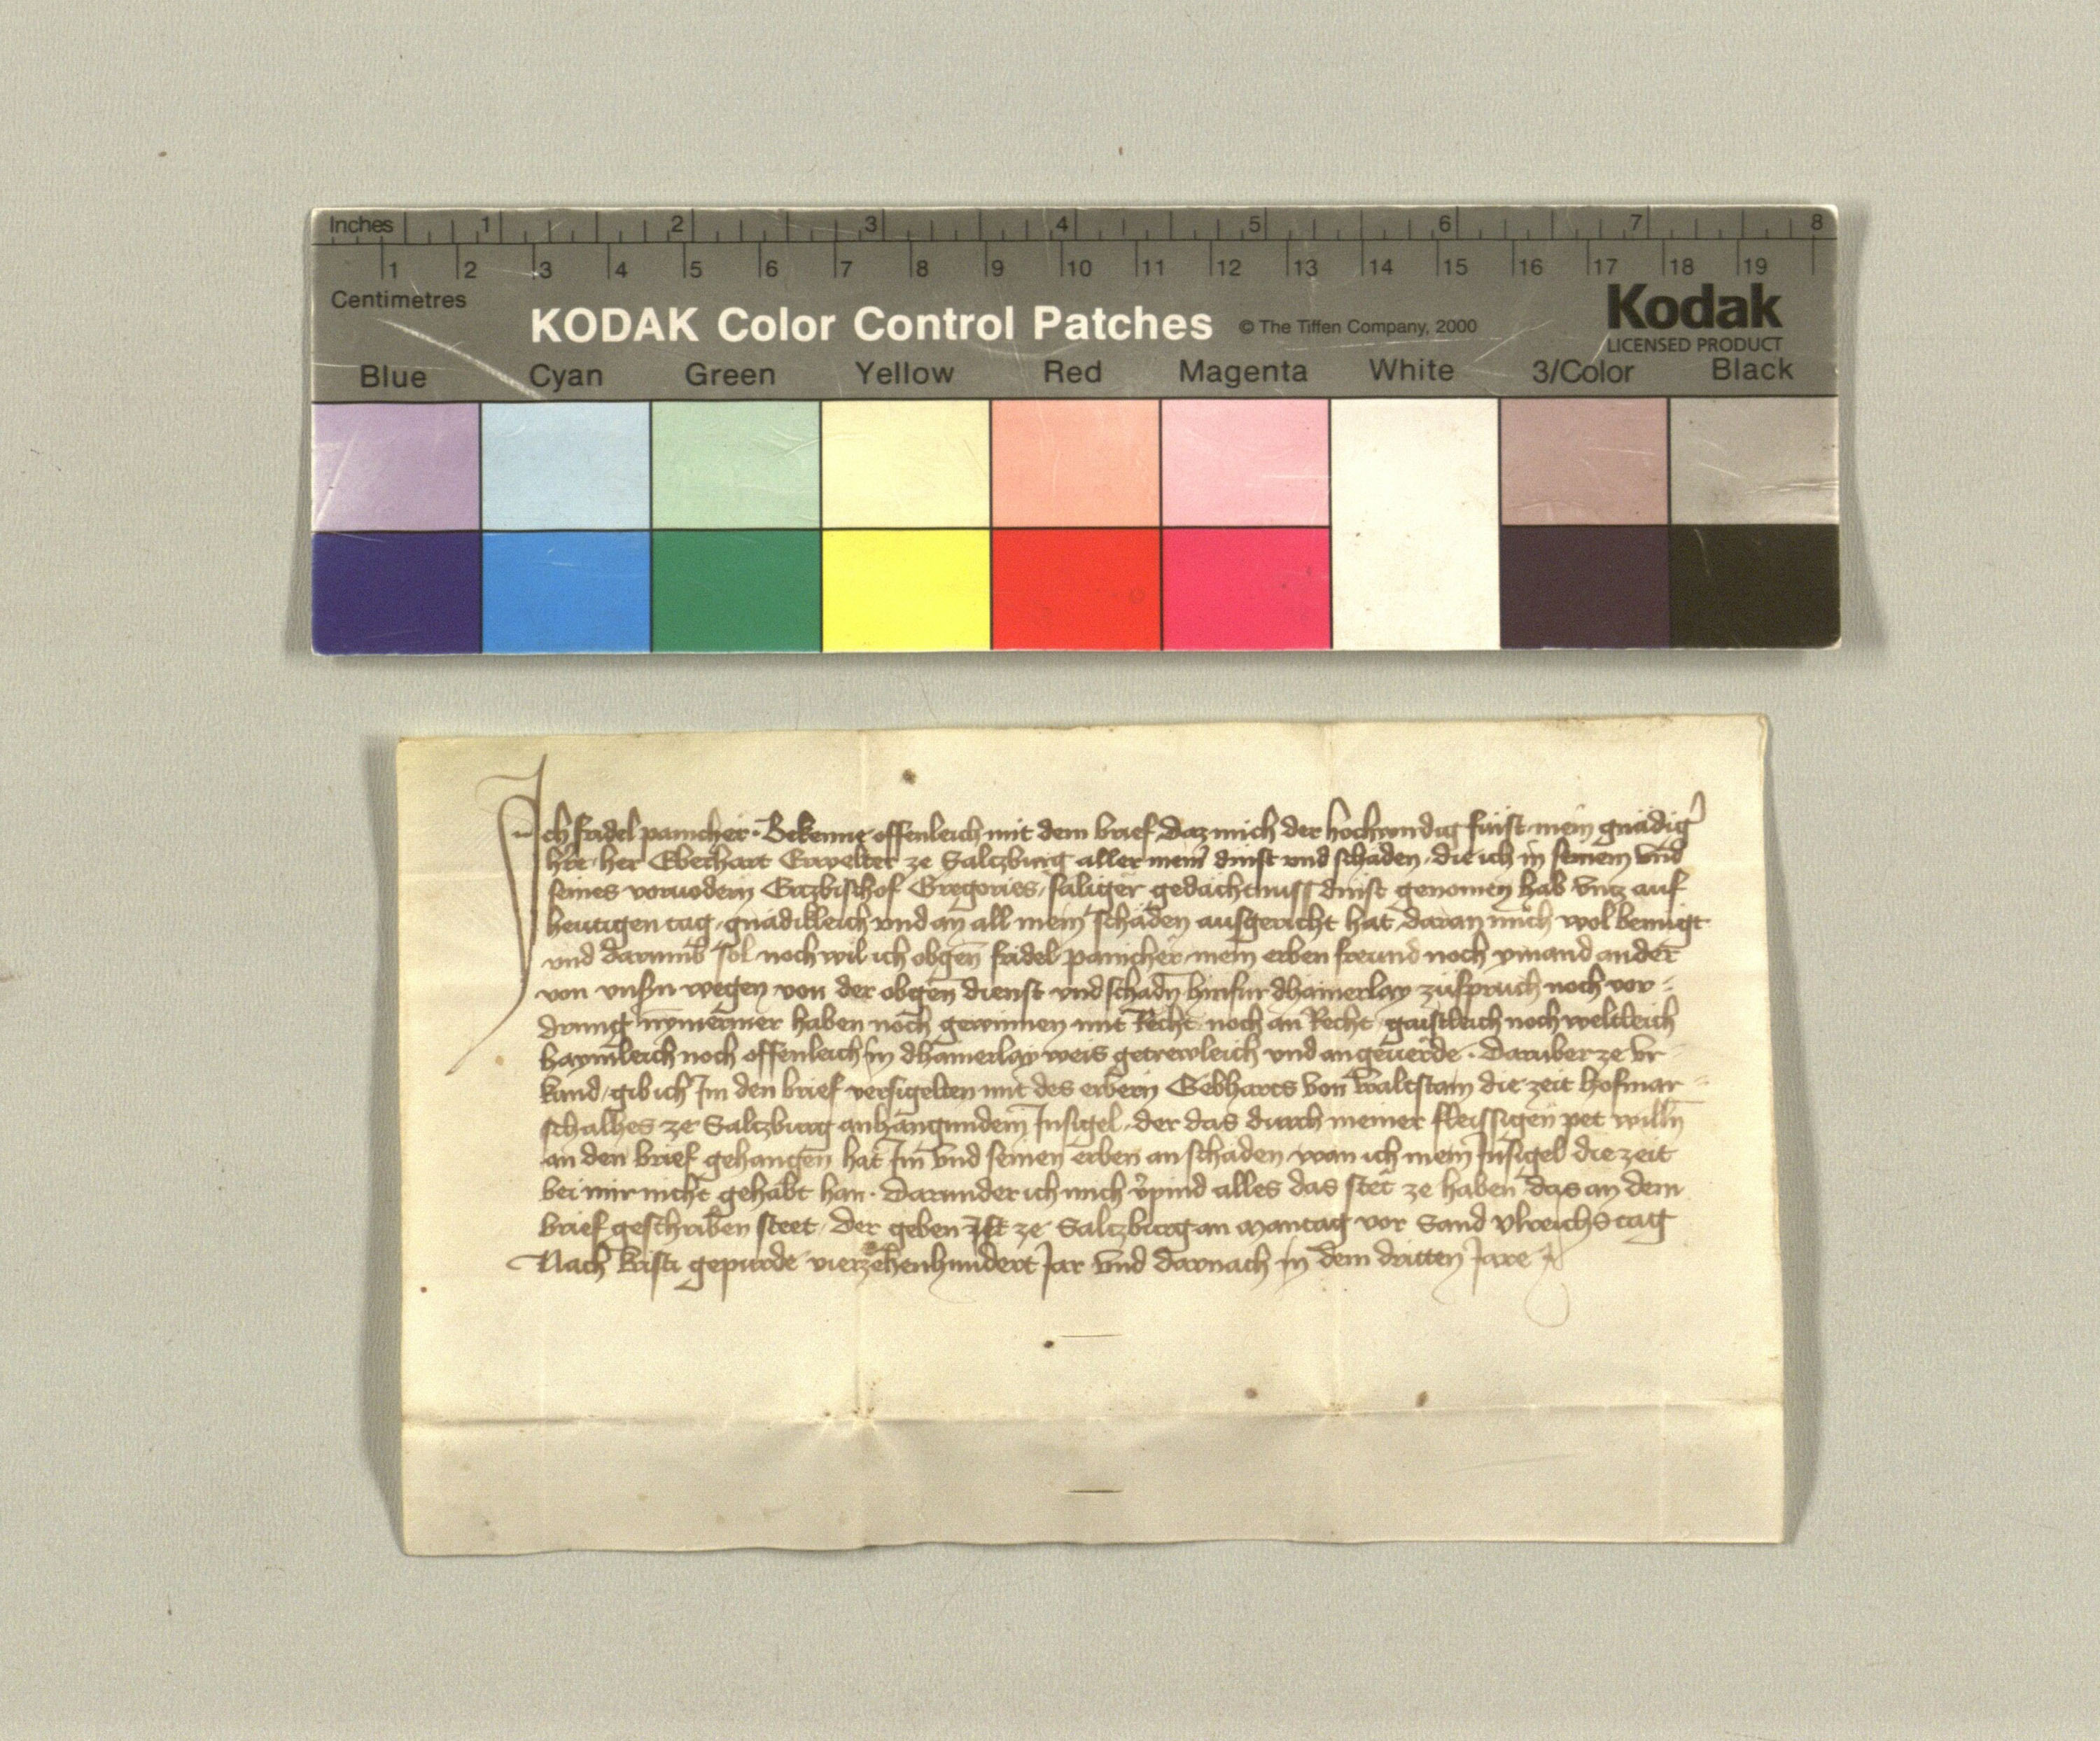 Inches 1 2 3 4 5 6 7 8
1 2 3 4 5 6 7 8 9 10 11 12 13 14 15 16 17 18 19
Centimetres
KODAK Color Control Patches © The Tiffen Company, 2000 Kodak
LICENSED PRODUCT
Blue Cyan Green Yellow Red Magenta White 3/Color Black
Ich fridel paincher. Bekenne offenleich mit dem brief daz mich der hochwirdig fürst mein gnädig
her Eberhart Erwelter ze Salczburg aller meiner dinst vnd schäden, die ich in seinem vnd
seines voruodern Erczbischof Gregories, säliger gedächtnuss dinst genomen hab vncz auf
heutigen tag, gnädikleich vnd an all mein schäden ausgericht hat, daran mich wol benügt
vnd darumb sol noch wil ich obgen fridel paincher mein erben freund noch ymand ander
von vnsern wegen von der obgen dienst vnd schadn hinfür dhainerlay zuspruch noch vor-
drung nymermer haben noch gewinnen mit Recht noch an Recht gaistleich noch weltleich
haymleich noch offenleich in dhainerlay weis getrewleich vnd an geuerde. Darüber ze vr-
kund, gib ich Im den brief versigelten mit des erbern Gebharts von die zeit hofmar-
schalhes ze Salczburg anhangundem Insigel, der das durch meiner fleissigen pet willn
an den brief gehangen hat Im vnd seinen erben an schaden wan ich mein Insigel die zeit
bei mir nicht gehabt han. Darunder ich mich v̾pind alles das stet ze haben das an dem
brief geschriben steet, der geben ist ze Salczburg an Mantag vor Sand Vlreichs tag
Nach kristi gepurde vierzehenhundert Jar vnd darnach in dem dritten Jare